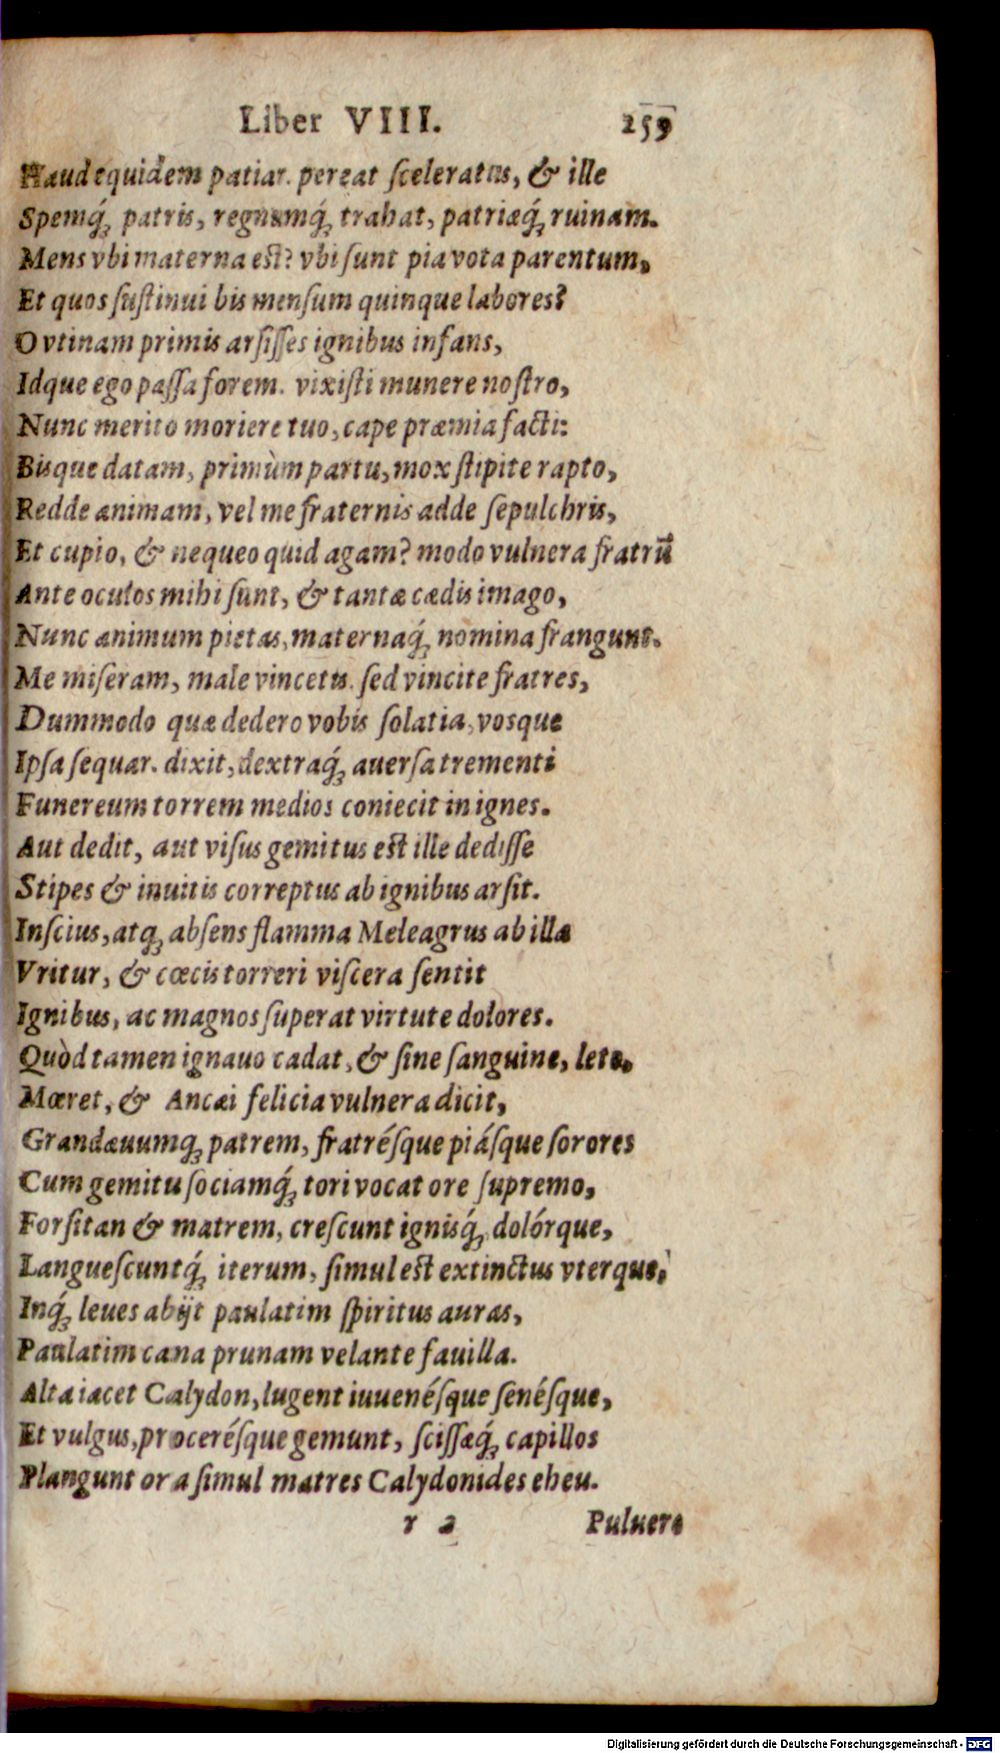 Liber VIII. 259
Haud equidem patiar. pereat ſceleratus, & ille
Spemq́; patris, regnumq́; trahat, patriæq́; ruinam.
Mens vbi materna est? vbi ſunt pia vota parentum,
Et quos ſuſtinui bis mensum quinque labores?
O vtinam primis arſiſſes ignibus infans,
Idque ego paſſa forem. vixiſti munere noſtro,
Nunc merito moriere tuo, cape præmia facti:
Bisque datam, primùm partu, mox ſtipite rapto,
Redde animam, vel me fraternis adde ſepulchris,
Et cupio, & nequeo quid agam? modo vulnera fratrū
Ante oculos mihi ſunt, & tantæ cædis imago,
Nunc animum pietas, maternaq́; nomina frangunt.
Me miſeram, male vincetis. ſed vincite fratres,
Dummodo quæ dedero vobis ſolatia, vosque
Ipſa ſequar. dixit, dextraq́; auerſa trementi
Funereum torrem medios coniecit in ignes.
Aut dedit, aut viſus gemitus est ille dediſſe
Stipes & inuitis correptus ab ignibus arſit.
Inſcius, atq; abſens flamma Meleagrus ab illa
Vritur, & cœcis torreri viſcera ſentit
Ignibus, ac magnos ſuperat virtute dolores.
Quòd tamen ignauo cadat, & ſine ſanguine, leto,
Mœret, & Ancæi felicia vulnera dicit,
Grandæuumq; patrem, fratréſque piáſque ſorores
Cum gemitu ſociamq́; tori vocat ore ſupremo,
Forſitan & matrem, creſcunt ignisq́; dolórque,
Langueſcuntq́; iterum, ſimul est extinctus vterque,
Inq́; leues abijt paulatim ſpiritus auras,
Paulatim cana prunam velante fauilla.
Alta iacet Calydon, lugent iuuenéſque ſenéſque,
Et vulgus, proceréſque gemunt, ſciſſæq́; capillos
Plangunt ora ſimul matres Calydonides eheu.
r 2 Puluere
Digitalisierung gefördert durch die Deutsche Forschungsgemeinschaft - DFG